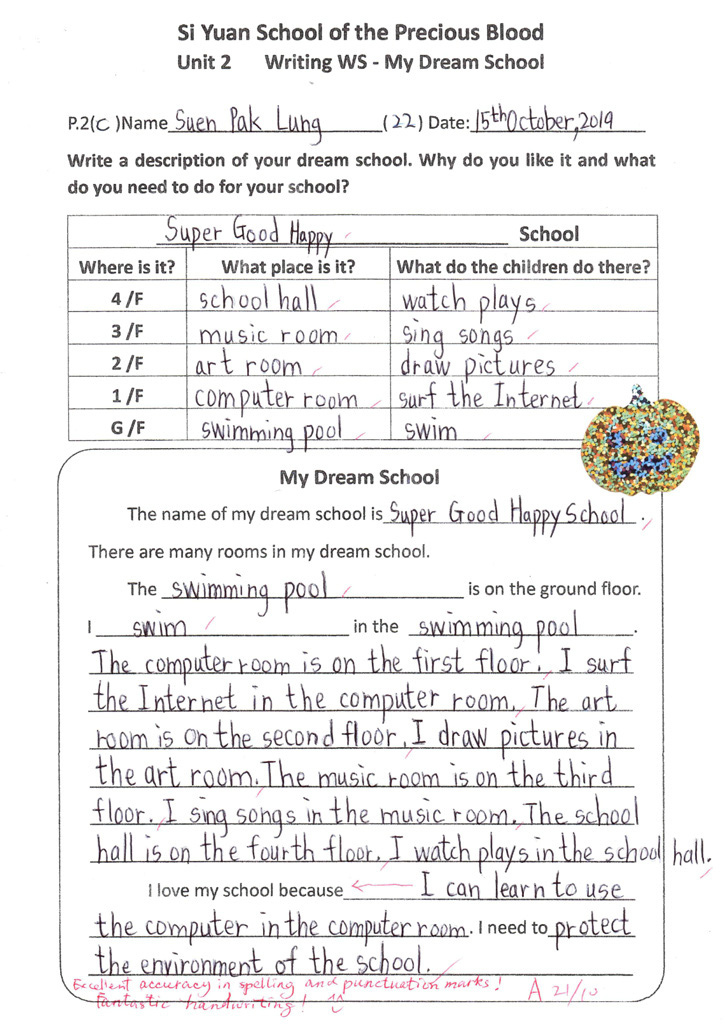 Si Yuan School of the Precious Blood
Unit 2 Writing WS - My Dream School
P.2(C)Name Suen Pak Lung (22) Date: 15th October, 2019
Write a description of your dream school. Why do you like it and what
do you need to do for your school?
Super Good Happy School
Where is it? What place is it? What do the children do there?
4 /F school hall watch plays
3 /F music room sing songs
2 /F art room draw pictures
1 /F computer room surf the Internet
G /F swimming pool swim
My Dream School
The name of my dream school is Super Good Happy School.
There are many rooms in my dream school.
The swimming pool is on the ground floor.
I swim in the swimming pool.
The computer room is on the first floor. I surf
the Internet in the computer room. The art
room is on the second floor. I draw pictures in
the art room. The music room is on the third
floor. I sing songs in the music room. The school
hall is on the fourth floor. I watch plays in the school hall.
I love my school because I can learn to use
the computer in the computer room. I need to protect
the environment of the school.
Excellent accuracy in spelling and punctuation marks!
Fantastic handwriting!
A 21/10